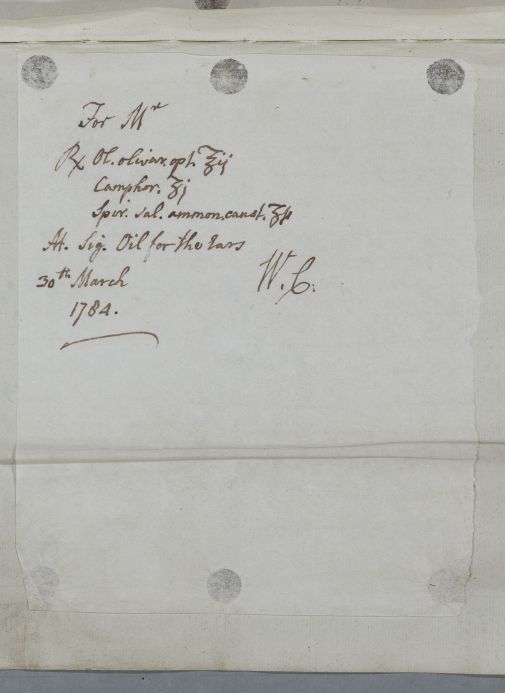 For Mr
℞ Ol. olivar. opt. ℥ij
Camphor. ʒj
Spir. sal. ammon. caust. ʒſs
M. Sig. Oil for the Ears
30th March
W. C.
1784.